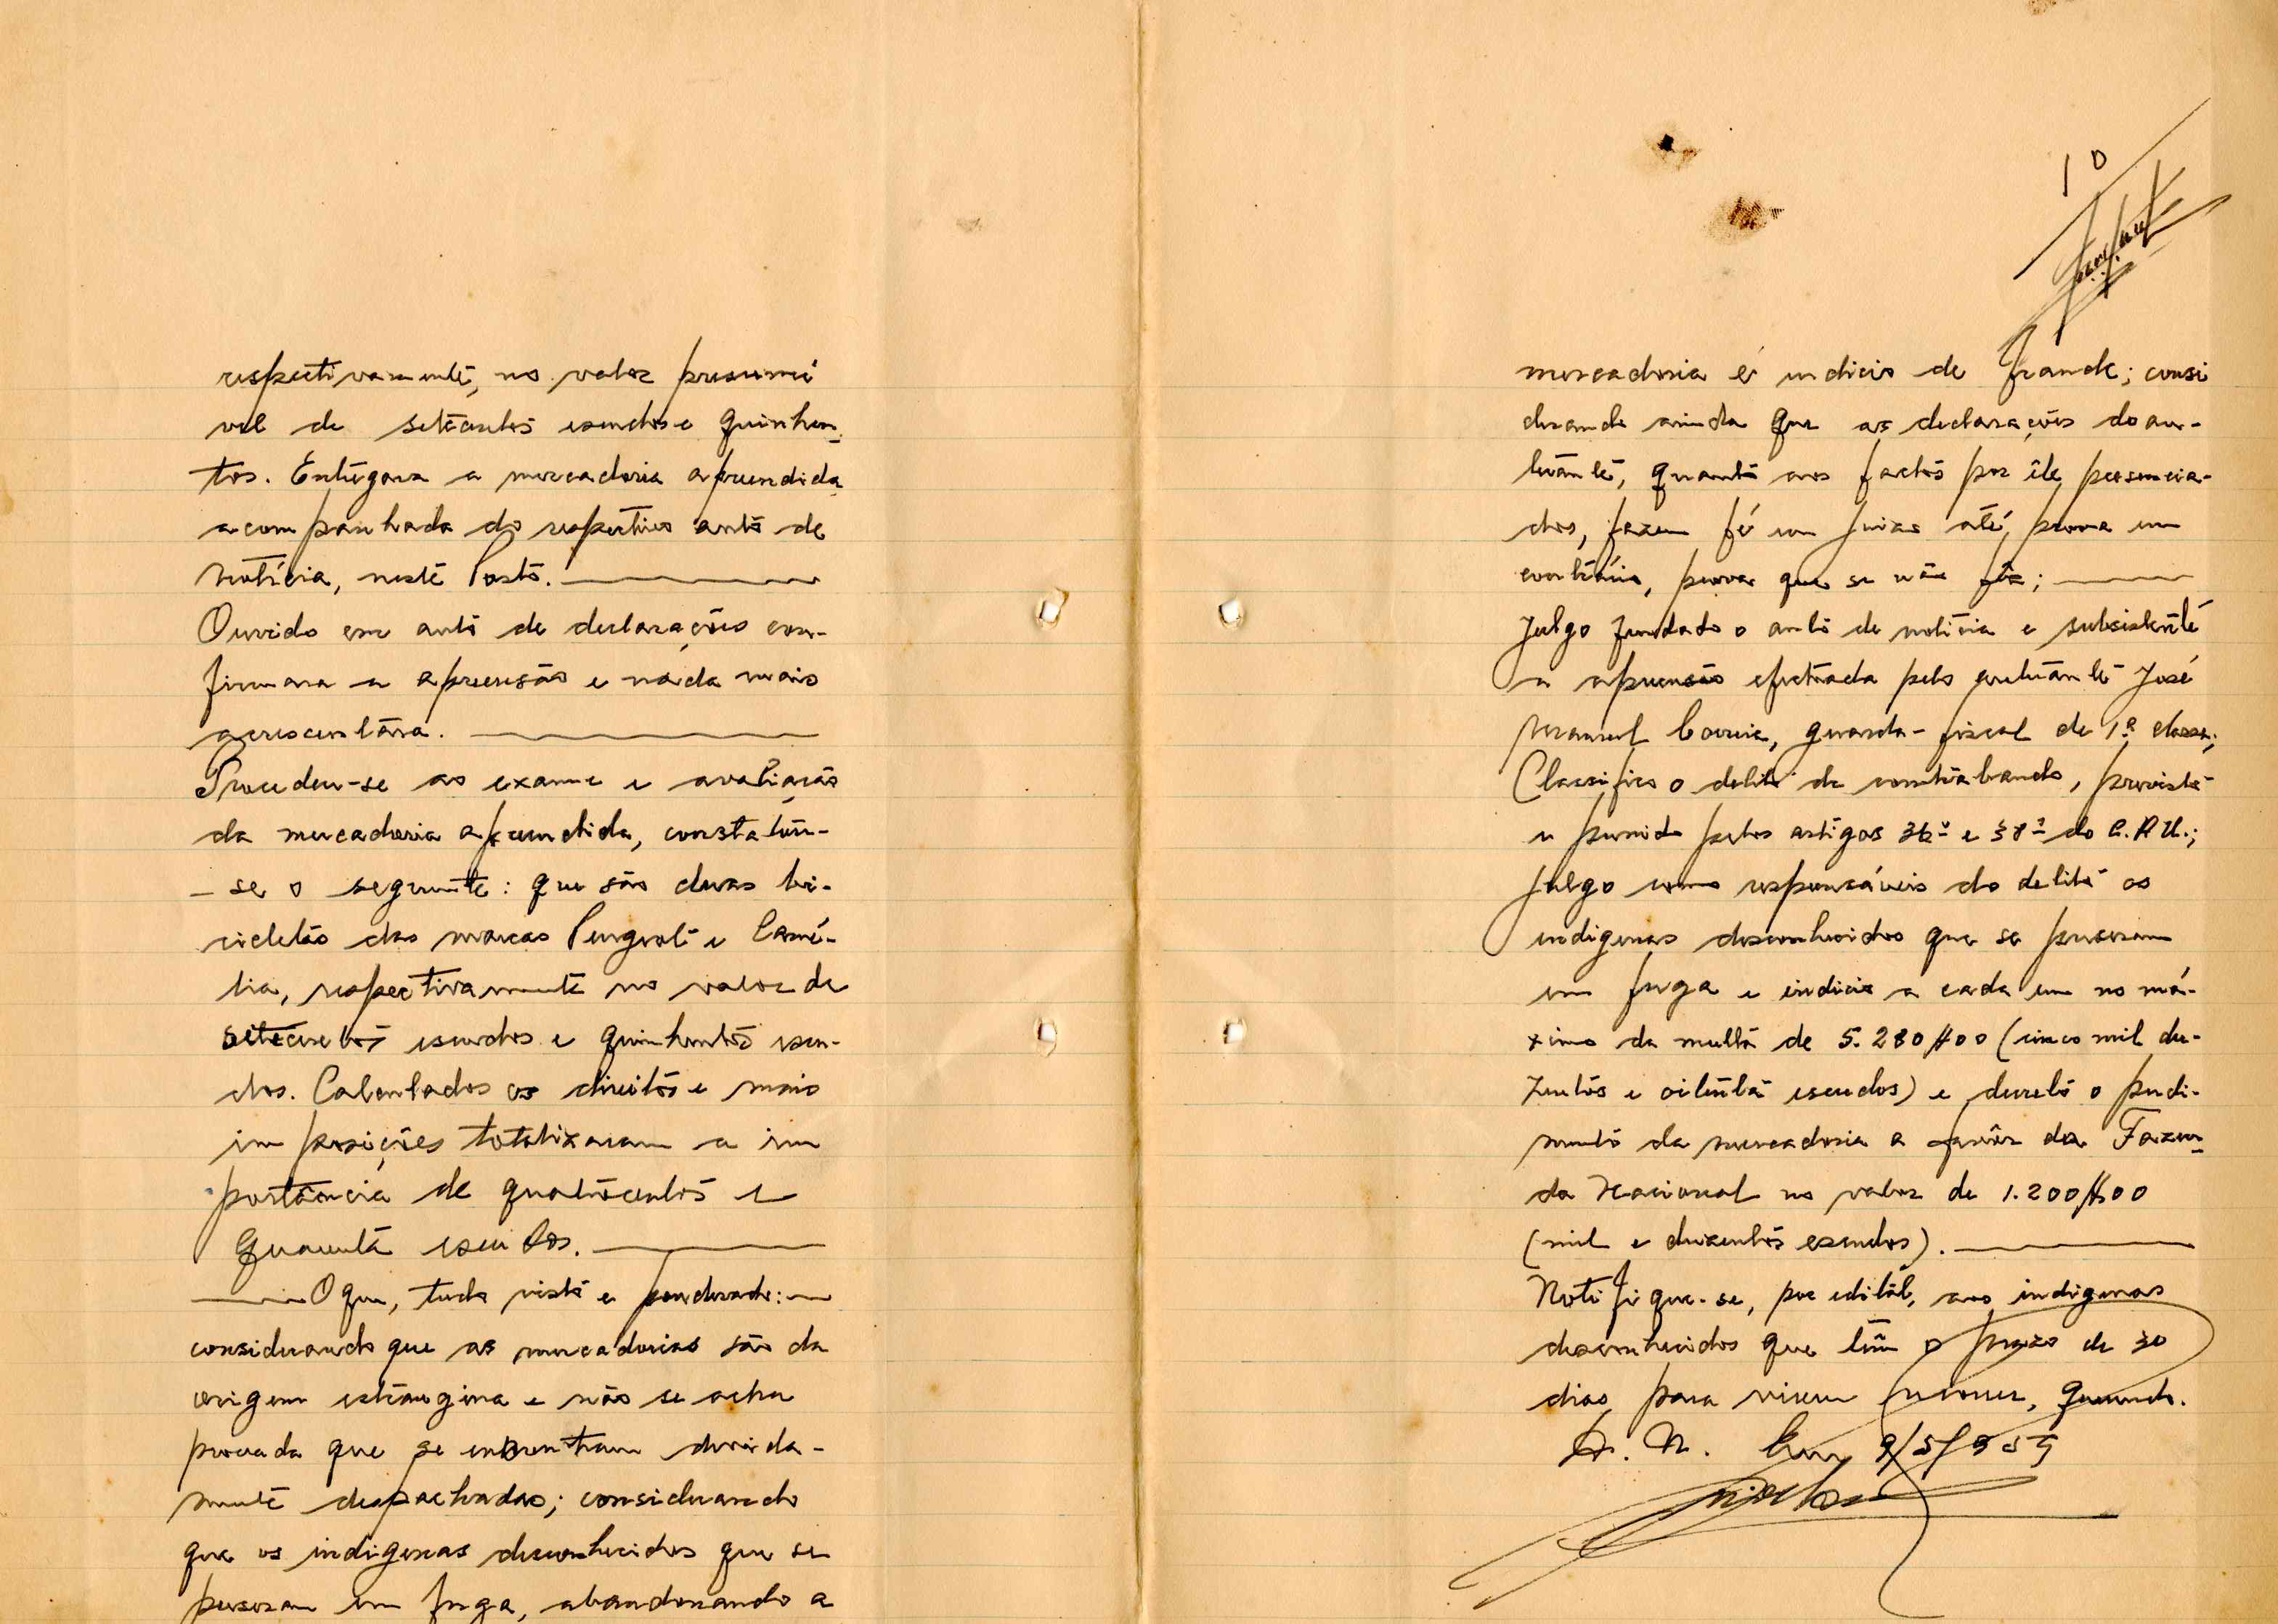 respectivamente, no valor presumi
vel de setecentos escudos e quinhen-
tos. Entregara a mercadoria apreendida
acompanhada do respectivo auto de
notícia, neste Posto.
Ouvido em auto de declarações con-
firmara a apreensão e nada mais
acrescentára.
Procedeu-se ao exame e avaliação
da mercadoria apreendida, constatou-
-se o seguinte: que são duas bi-
cicletas das marcas Peugeot e Camé-
lia, respectivamente no valor de
setecentos escudos e quinhentos escu-
dos. Calculados os direitos e mais
imposições totalizaram a im
portância de quatrocentos e
quarenta escudos.
O que, tudo visto e ponderado:
considerando que as mercadorias são da
origem estrangeira e não se acha
provada que se encontram devida-
mente despachadas; considerando
que os indigenas desconhecidos que se
puseram em fuga, abandonando a
10
mercadoria é indicio de fraude; consi
derando ainda que as declarações do au-
tuante, quanto aos factos por êle presencia-
dos, fazem fé em juizo até prova em
contrário, prova que se não fêz;
Julgo fundado o auto de notícia e subsistente
a apreensão efectuada pelo autuante José
Manuel Correia, guarda-fiscal de 1.ª classe;
Classifico o delito de contrabando, previsto
e punido pelos artigos 36º e 38º do C.A.U.;
Julgo como responsáveis do delito os
indigenas desconhecidos que se puseram
em fuga e indicio a cada um no má-
ximo da multa de 5.280$00 (cinco mil du-
zentos e oitenta escudos) e decreto o perdi-
mento da mercadoria a favôr da Fazen-
da Nacional no valor de 1.200$00
(mil e duzentos escudos).
Notifique-se, por edital, aos indigenas
desconhecidos que têm o prazo de 30
dias para virem recorrer, querendo.
D. N. Em 9/5/955